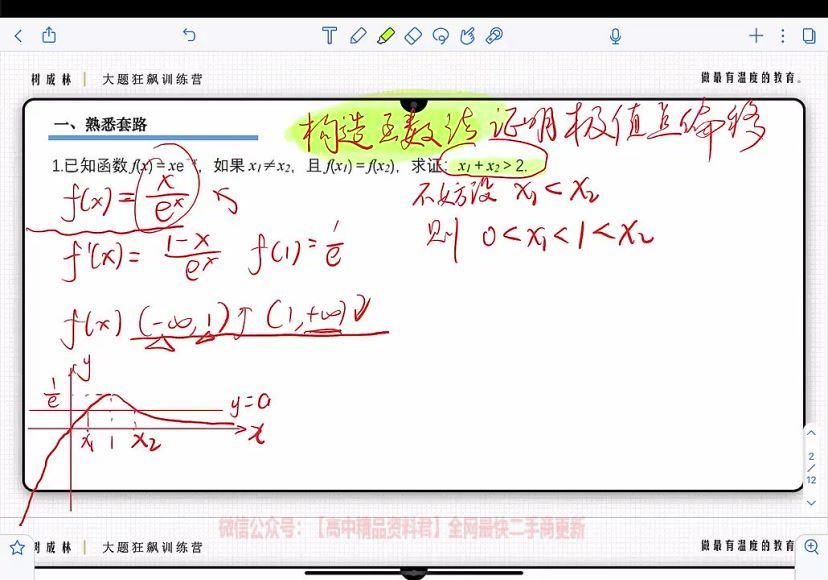 树成林 | 大题狂飙训练营
做最有温度的教育。
一、熟悉套路
构造函数法 证明极值点偏移
1.已知函数 f(x) = xe⁻ˣ，如果 x₁≠x₂，且 f(x₁) = f(x₂)，求证：x₁ + x₂ > 2.
f(x) = x/eˣ
不妨设 x₁ < x₂
则 0 < x₁ < 1 < x₂
f'(x) = (1-x)/eˣ f(1) = 1/e
f(x) (-∞, 1)↑ (1, +∞)↓
y
1/e
y=a
x₁ 1 x₂ x
2/12
微信公众号：【高中精品资料君】全网最快二手商更新
树成林 | 大题狂飙训练营
做最有温度的教育。